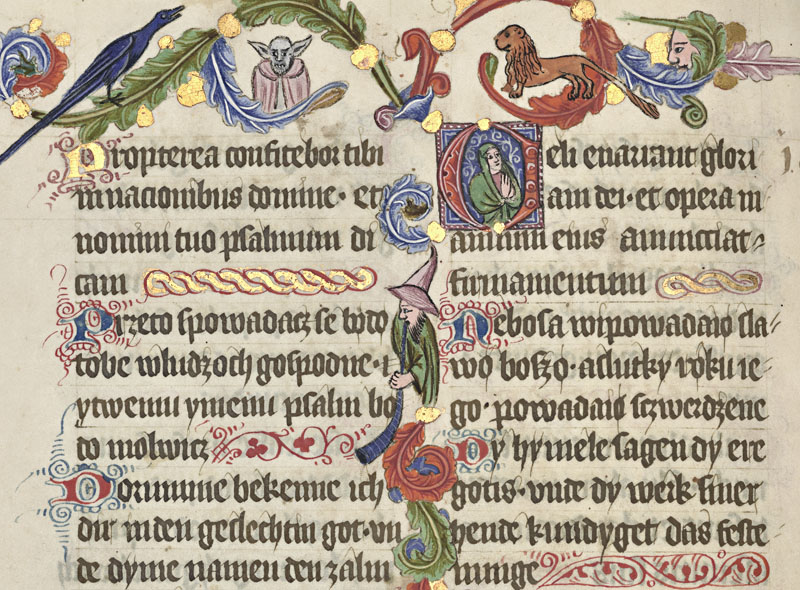 Propterea confitebor tibi
in nacionibus domine · et
nomini tuo psalmum di
cam
Przeto spowadacz se bødø
tobe wludzoch gospodne · i
ytwemu ymenu psalm bø
dø molwicz
Dorumme bekenne ich
dir in den geslechtin got · vn
de dyme namen den zalm
Celi enarrant glori
am dei · et opera m
anuum eius annunciat
firmamentum
Nebosa wipowadaiø sla
wø boszø · a slutky røku ie
go · powadaiø sczwerdzene
Dy hymele sagen dy ere
gotis · vnde dy werk siner
hende kundyget das feste
nunge